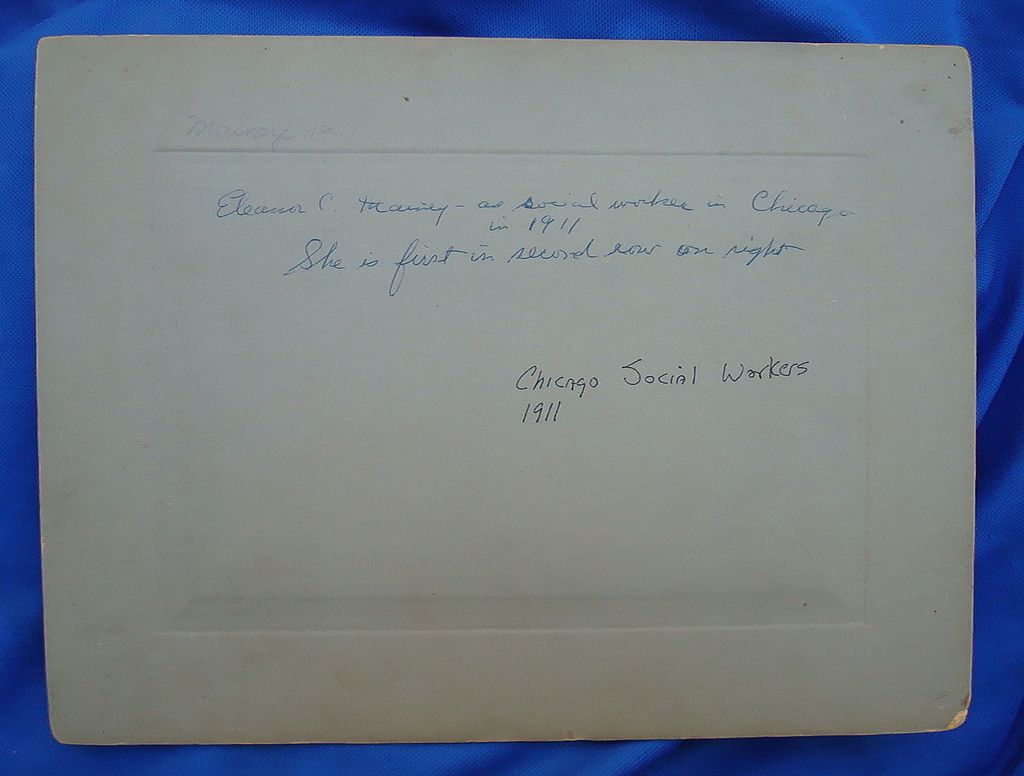 1911
Eleanor C. - as social worker in Chicago
in 1911
She is first in second row on right
Chicago Social Workers
1911